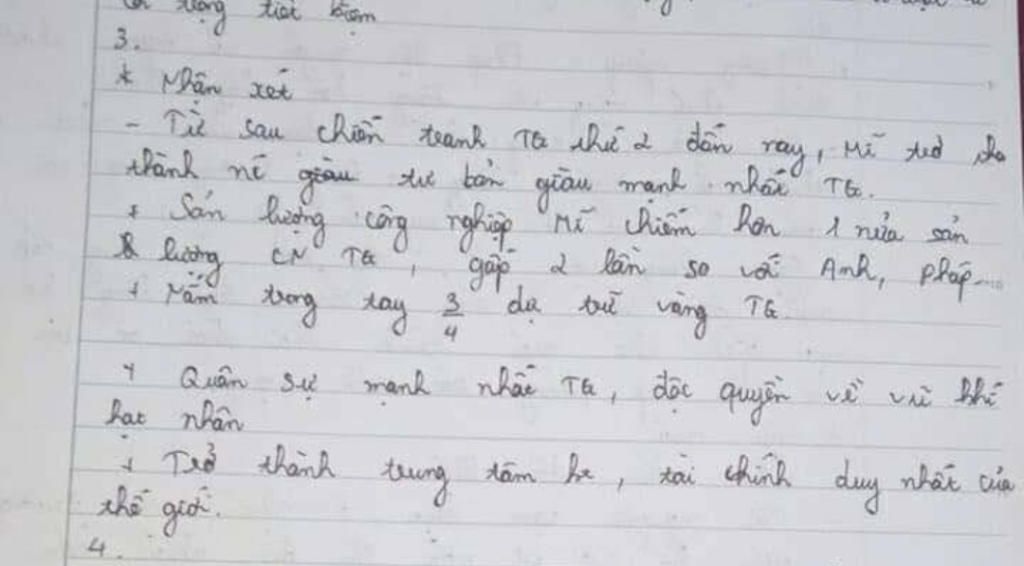 trọng tiết kiệm
3.
* Nhận xét
- Từ sau chiến tranh TG thứ 2 đến nay, Mĩ trở
thành nc giàu tư bản giàu mạnh nhất TG.
+ Sản lượng công nghiệp Mĩ chiếm hơn 1 nửa sản
lượng CN TG, gấp 2 lần so với Anh, Pháp...
+ Nắm trong tay 3/4 dự trữ vàng TG
+ Quân sự mạnh nhất TG, độc quyền về vũ khí
hạt nhân
+ Trở thành trung tâm kt, tài chính duy nhất của
thế giới.
4.